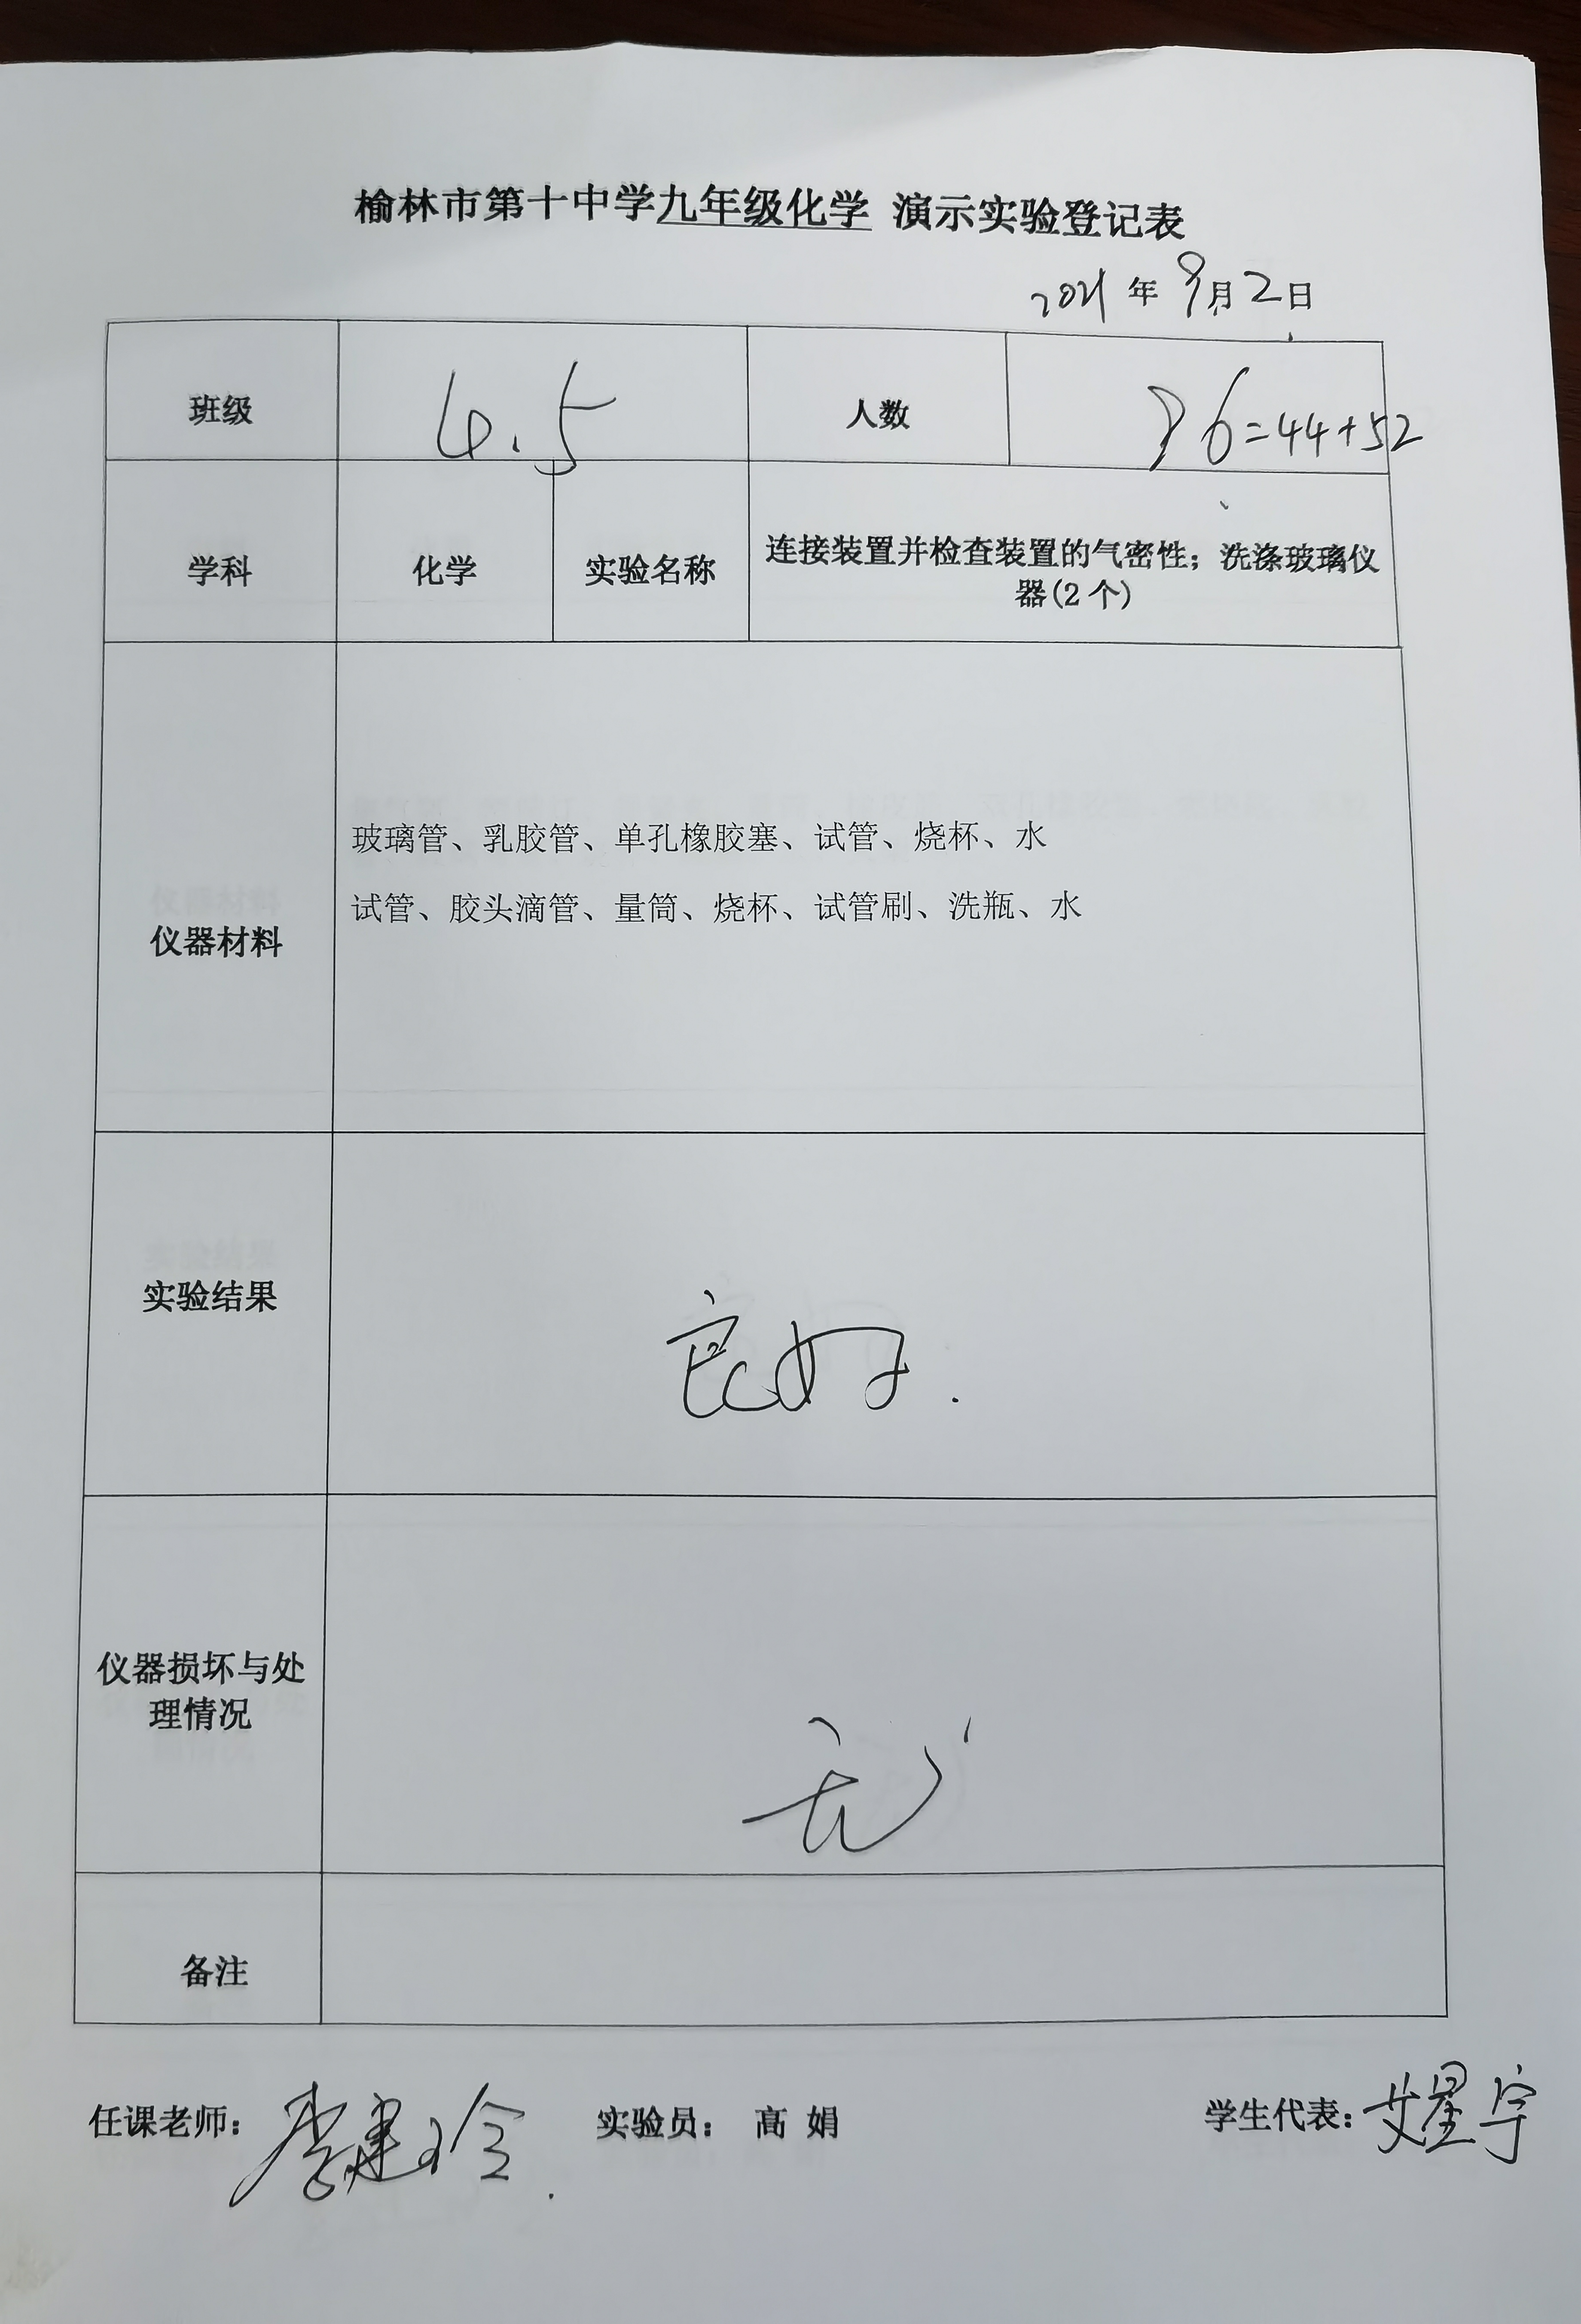 榆林市第十中学九年级化学 演示实验登记表
2021年9月2日
班级 4.5 人数 96=44+52
学科 化学 实验名称 连接装置并检查装置的气密性；洗涤玻璃仪
器(2个)
玻璃管、乳胶管、单孔橡胶塞、试管、烧杯、水
试管、胶头滴管、量筒、烧杯、试管刷、洗瓶、水
仪器材料
实验结果 良好.
仪器损坏与处
理情况
无
备注
任课老师： 李建玲. 实验员： 高 娟 学生代表: 艾星宇